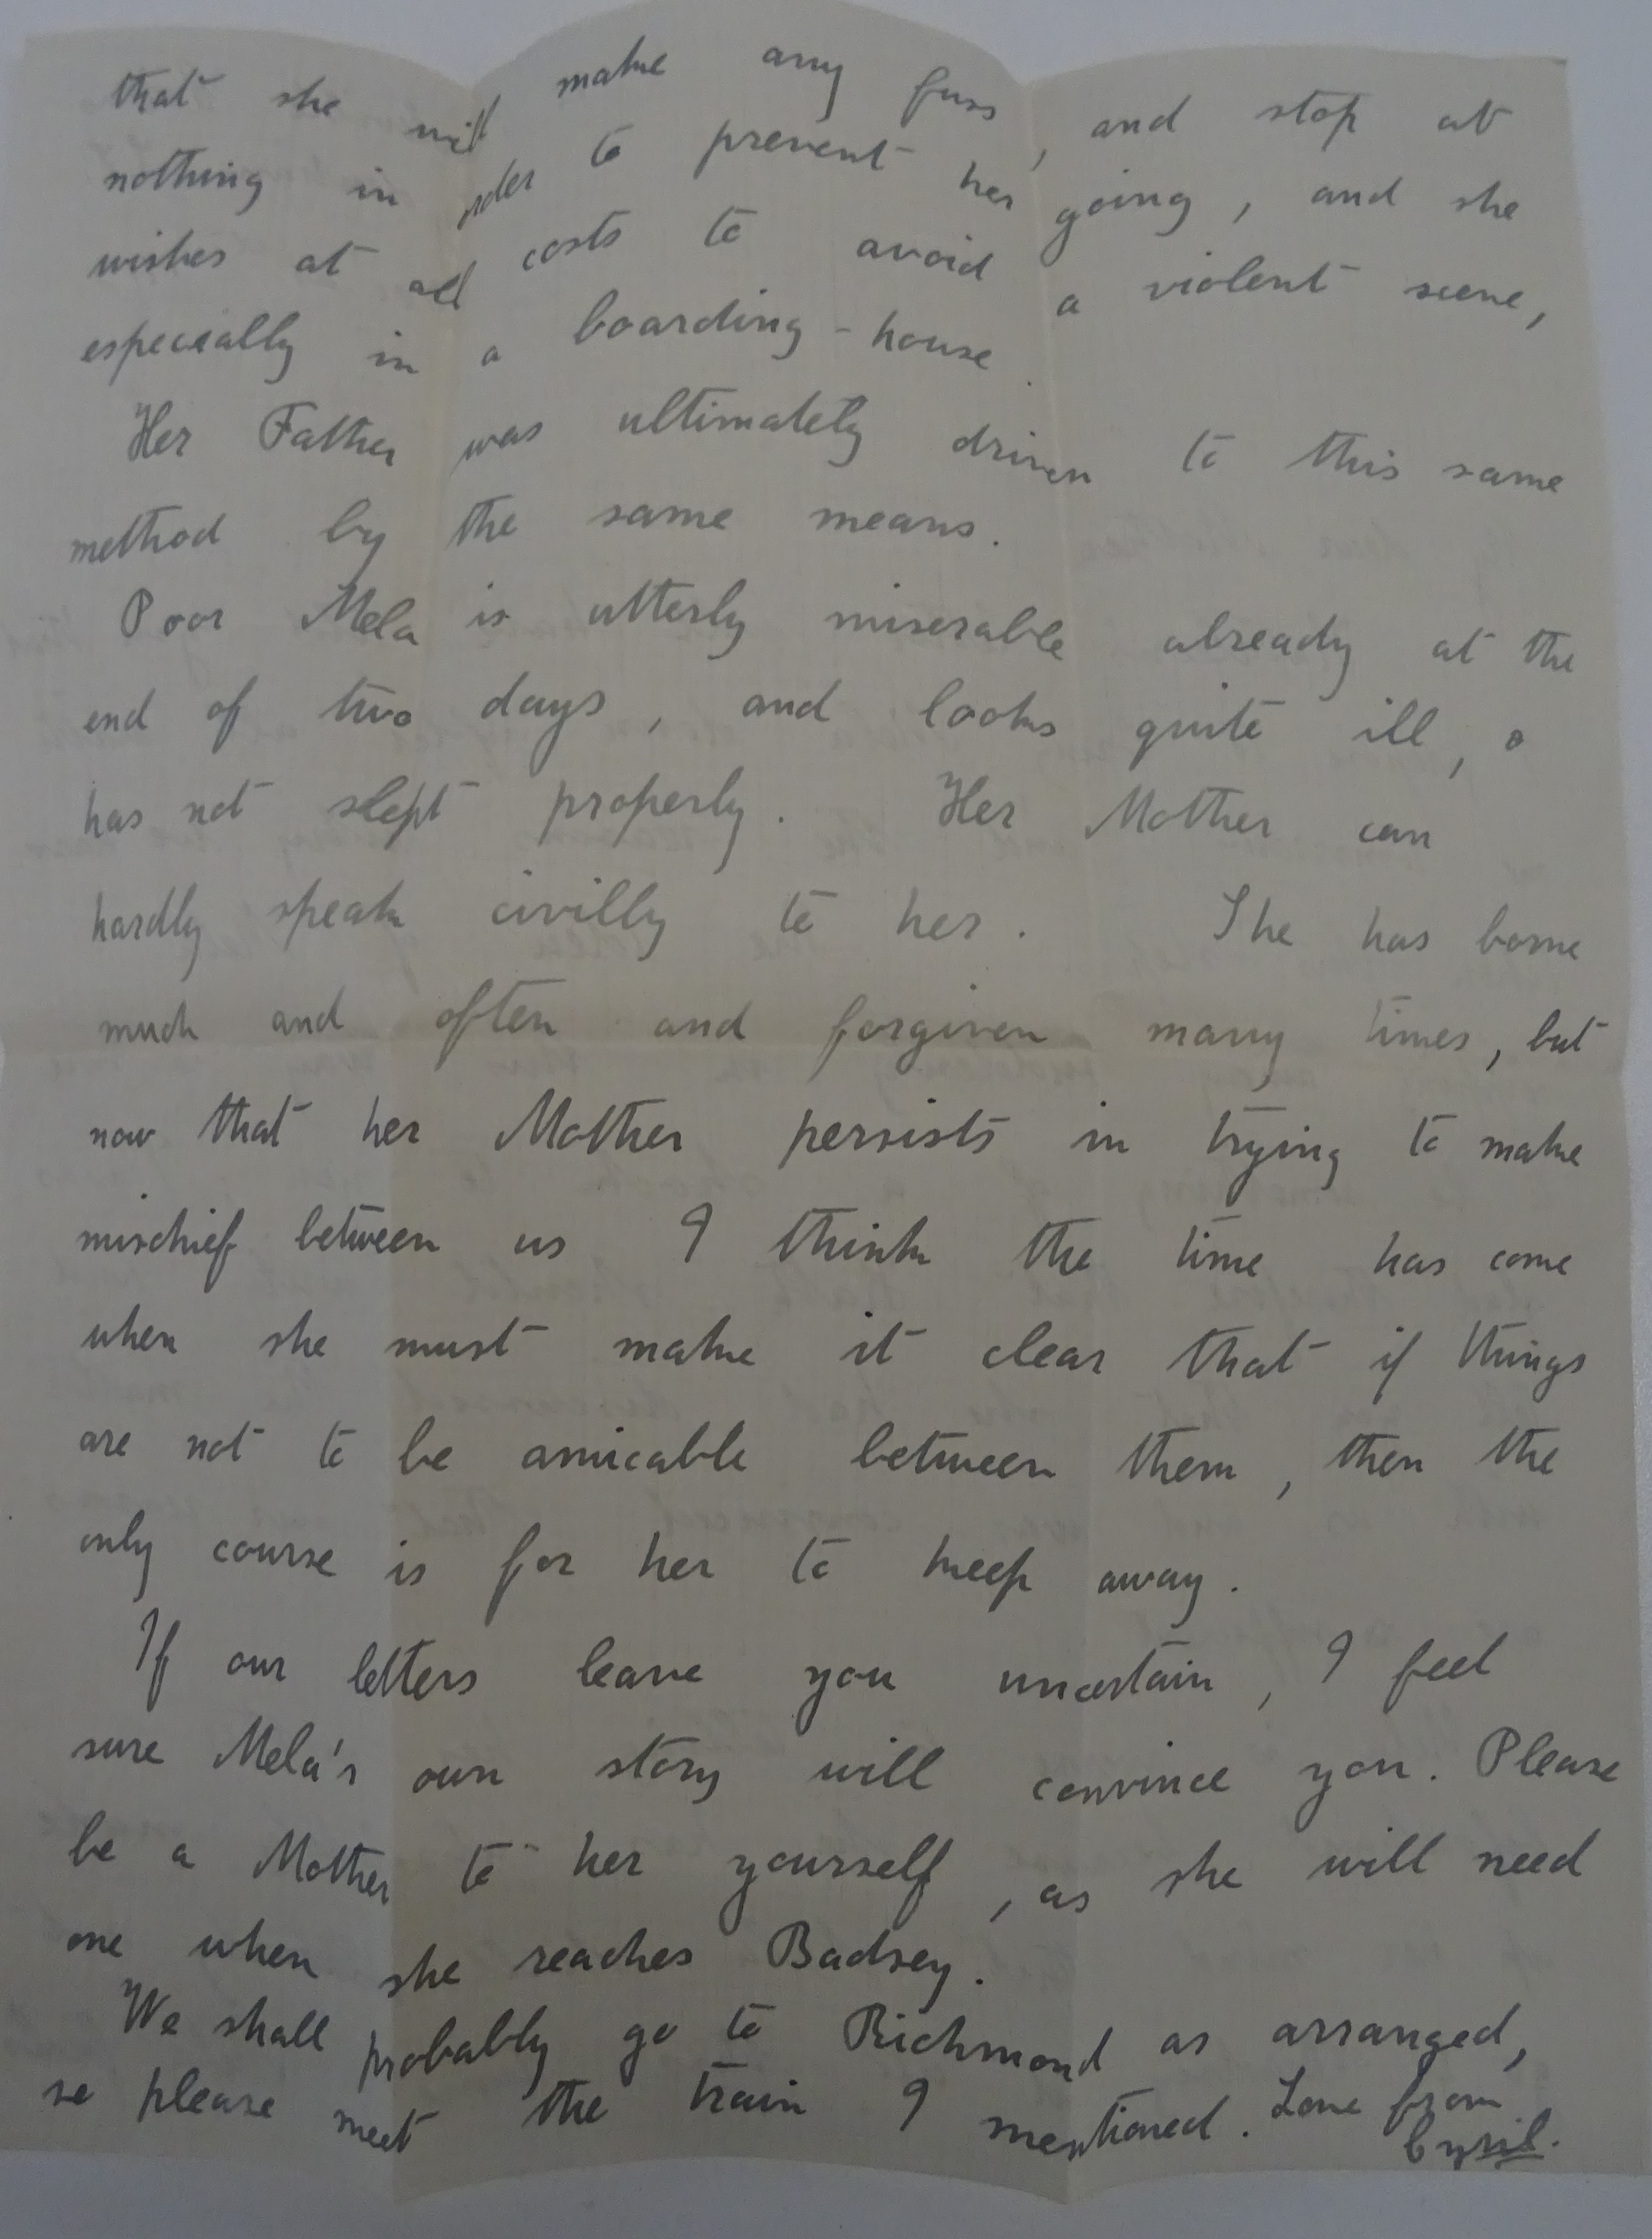 that she will make any fuss, and stop at
nothing in order to prevent her going, and she
wishes at all costs to avoid a violent scene,
especially in a boarding-house.
Her Father was ultimately driven to this same
method by the same means.
Poor Mela is utterly miserable already at the
end of two days, and looks quite ill, &
has not slept properly. Her Mother can
hardly speak civilly to her. She has borne
much and often and forgiven many times, but
now that her Mother persists in trying to make
mischief between us I think the time has come
when she must make it clear that if things
are not to be amicable between them, then the
only course is for her to keep away.
If our letters leave you uncertain, I feel
sure Mela's own story will convince you. Please
be a Mother to her yourself, as she will need
one when she reaches Badsey.
We shall probably go to Richmond as arranged,
so please meet the train I mentioned. Love from
Cyril.